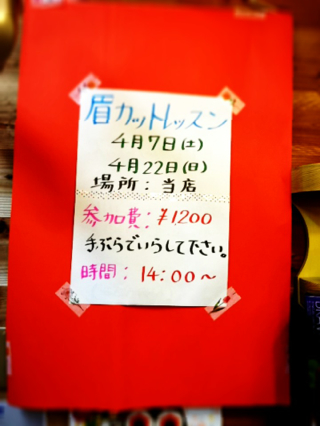 眉カットレッスン
4月7日(土)
4月22日(日)
場所：当店
参加費：¥1200
手ぶらでいらして下さい。
時間：14:00〜